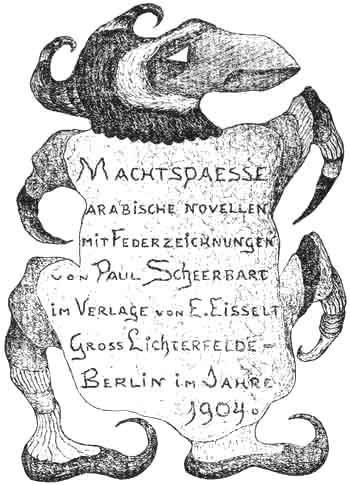 MACHTSPAESSE
ARABISCHE NOVELLEN
MIT FEDERZEICHNUNGEN
VON PAUL SCHEERBART
IM VERLAGE VON E. EISSELT
GROSS LICHTERFELDE-
BERLIN IM JAHRE
1904.